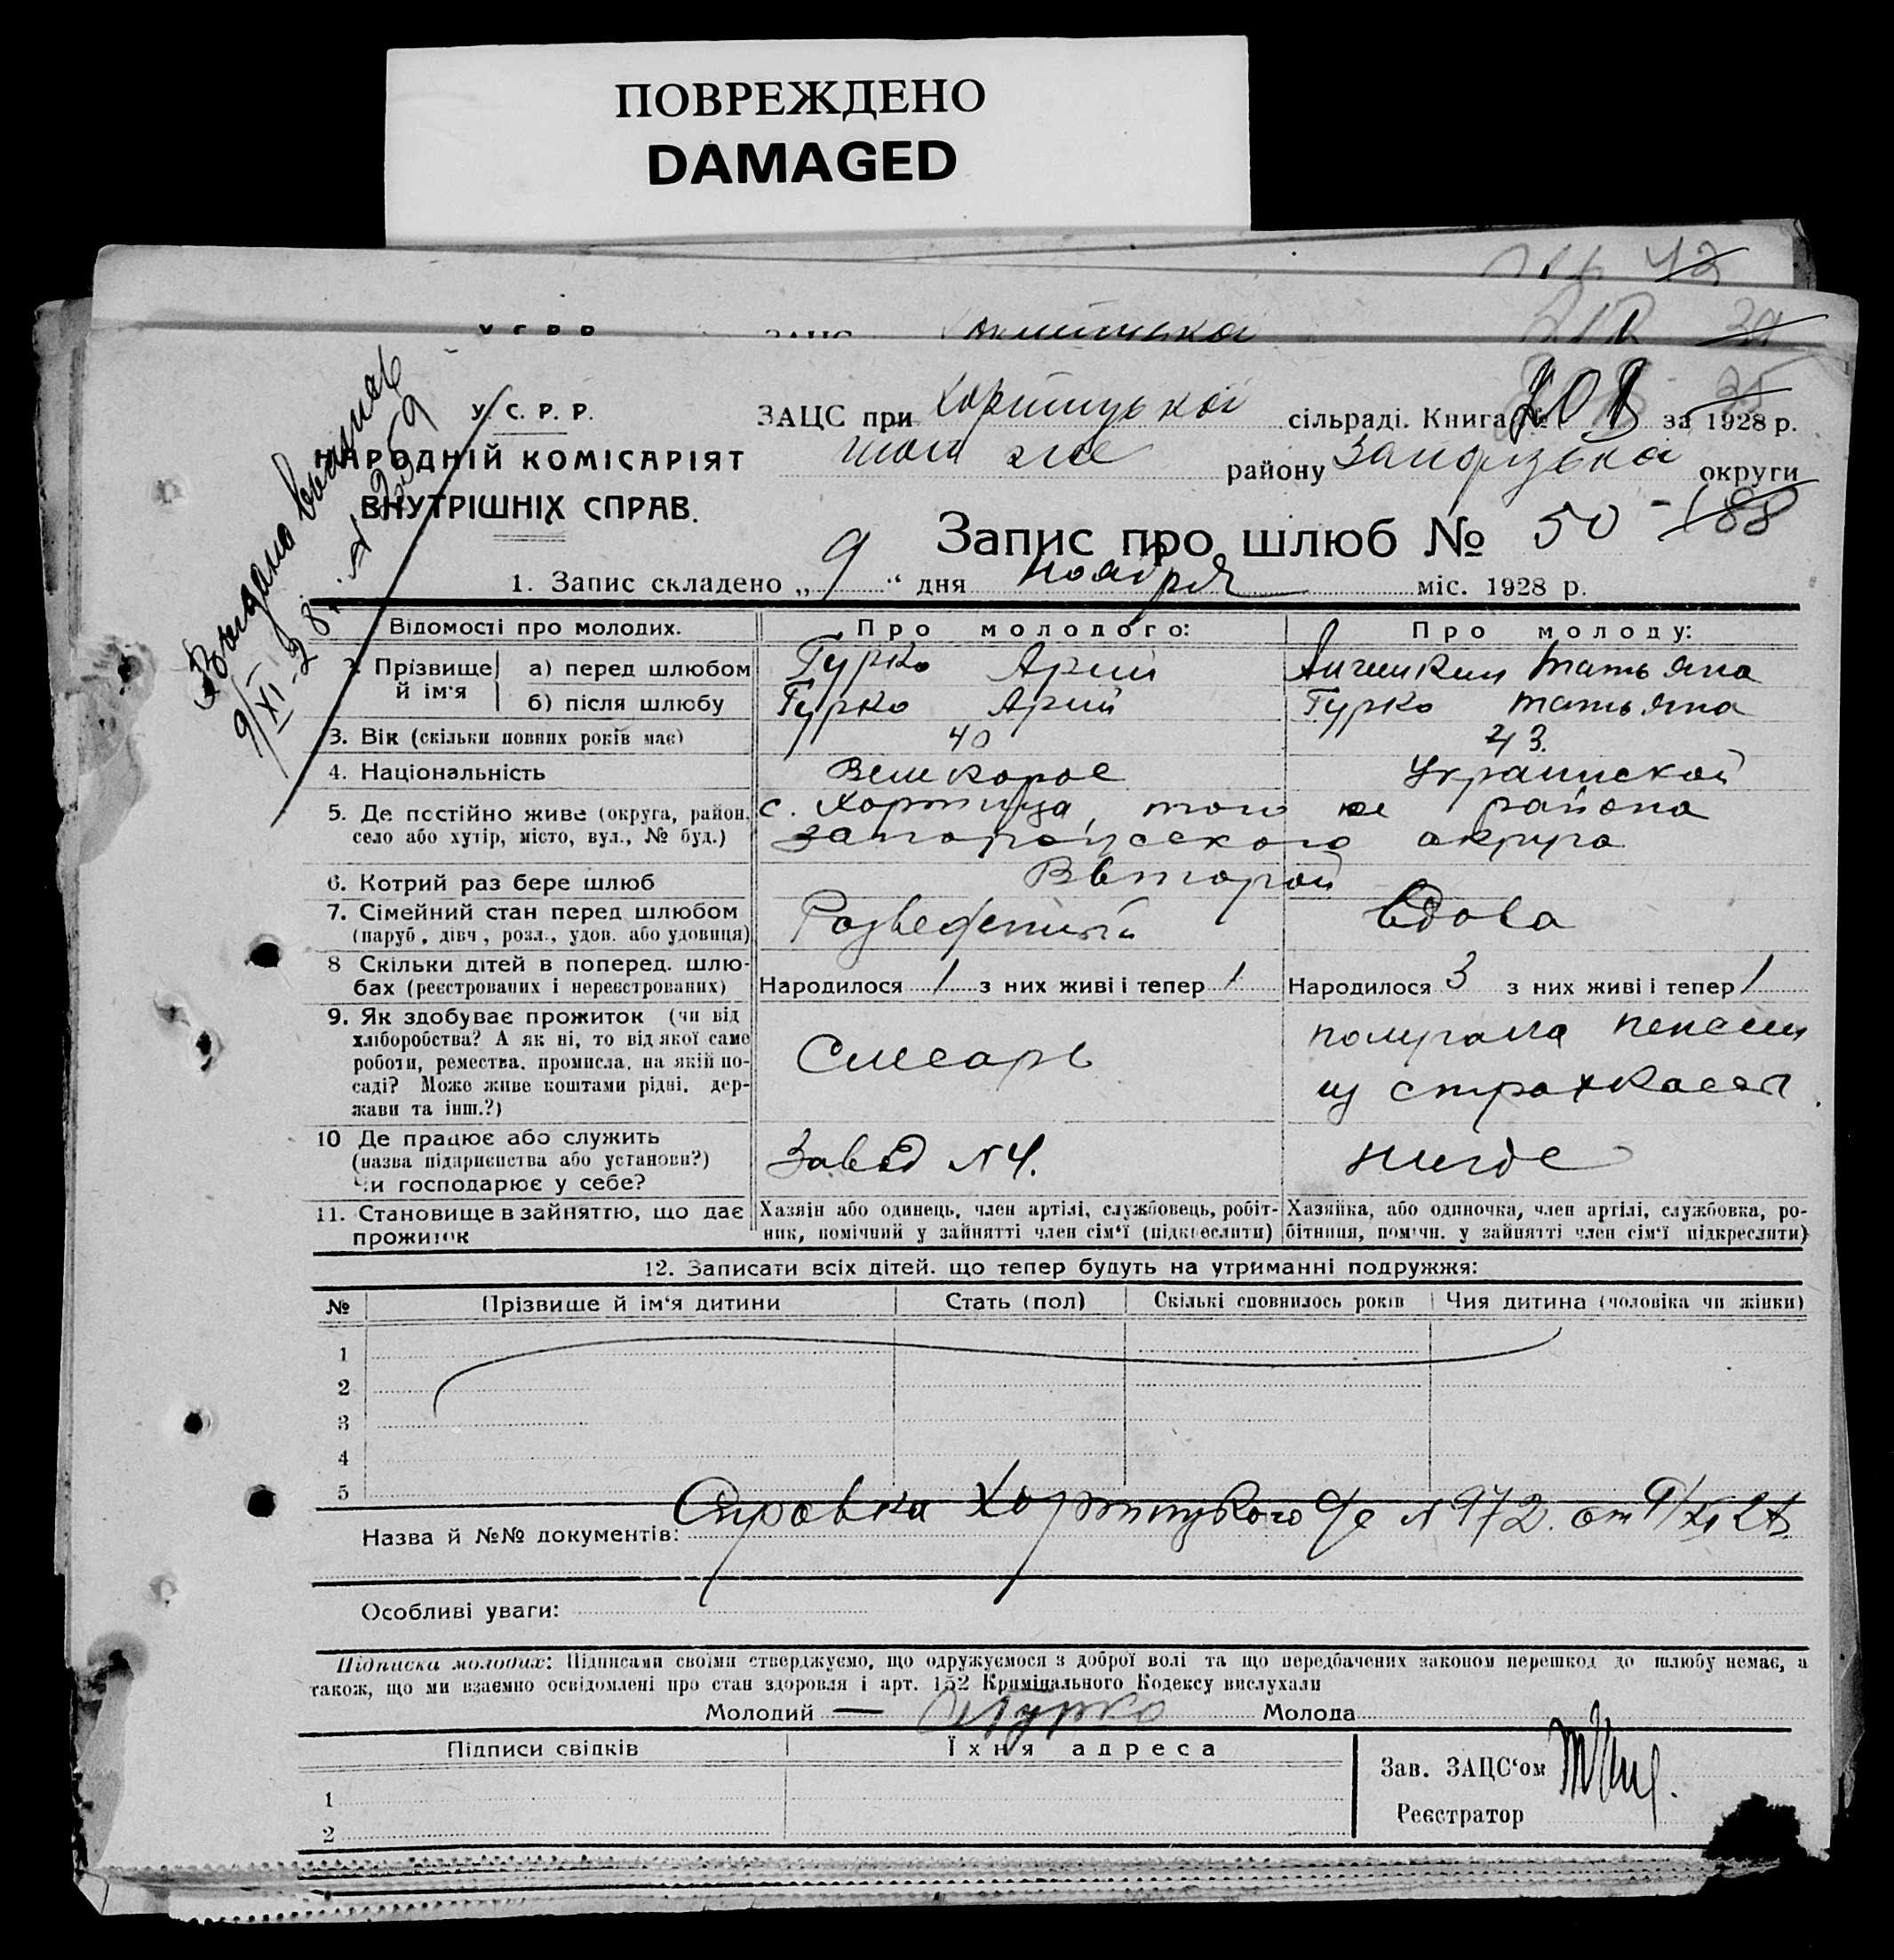 ПОВРЕЖДЕНО
DAMAGED
У. С. Р. Р.
НАРОДНІЙ КОМІСАРІЯТ
ВНУТРІШНІХ СПРАВ.
ЗАЦС при Хортицької сільраді. Книга № за 1928 р.
того же району Запорізька округи
Запис про шлюб № 50 - 188
1. Запис складено „ 9 “ дня ноября міс. 1928 р.
Відомості про молодих. Про молодого: Про молоду:
2. Прізвище й ім‘я а) перед шлюбом Гурко Арий Татьяна
б) після шлюбу Гурко Арий Гурко Татьяна
3. Вік (скільки повних років має) 40 43.
4. Національність Великорос Украинской
5. Де постійно живе (округа, район, с. Хортица, того же района
село або хутір, місто, вул., № буд.) Запорожского округа
6. Котрий раз бере шлюб Второй
7. Сімейний стан перед шлюбом Розведеный Вдова
(паруб, дівч, розл., удов. або удовиця)
8 Скільки дітей в поперед. шлю-
бах (реєстрованих і нереєстрованих) Народилося 1 з них живі і тепер 1 Народилося 3 з них живі і тепер 1
9. Як здобуває прожиток (чи від
хліборобства? А як ні, то від якої саме
роботи, ремества, промисла, на якій по-
саді? Може живе коштами рідні, дер-
жави та інш.?)
Слесарь
получала пенсии
из страхкассы.
10 Де працює або служить
(назва підприємства або установи?)
Чи господарює у себе?
Завод N 4.
нигде
11. Становище в зайняттю, що дає
прожиток
Хазяїн або одинець, член артілі, службовець, робіт-
ник, помічний у зайнятті член сім‘ї (підкреслити)
Хазяйка, або одиночка, член артілі, службовка, ро-
бітниця, помічн. у зайнятті член сім‘ї підкреслити)
12. Записати всіх дітей, що тепер будуть на утриманні подружжя:
№ Прізвище й ім‘я дитини Стать (пол) Скількі сповнилось років Чия дитина (чоловіка чи жінки)
1
2
3
4
5
Назва й №№ документів: Справка Хортицького с/с N 972. от 9/XI 28
Особливі уваги:
Підписка молодих: Підписами своїми стверджуємо, що одружуємося з доброї волі та що передбачених законом перешкод до шлюбу немає, а
також, що ми взаємно освідомлені про стан здоровля і арт. 152 Кримінального Кодексу вислухали
Молодий — Гурко Молода
Підписи свідків Їхня адреса
Зав. ЗАЦС‘ом
Реєстратор
1
2